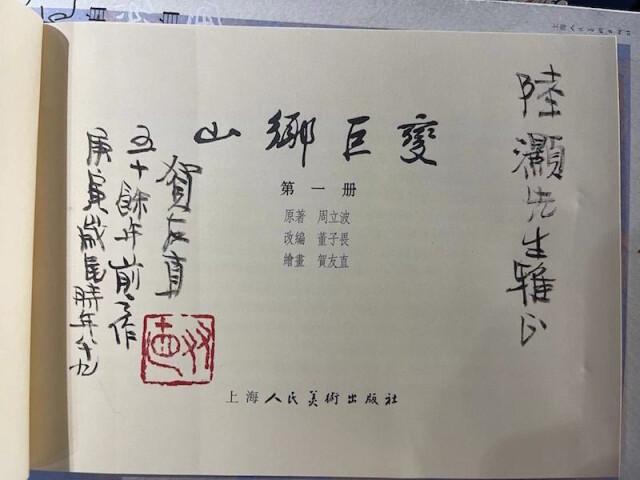 陸灝先生雅正
山鄉巨變
第一册
原著 周立波
改編 董子畏
繪畫 賀友直
上海人民美術出版社
賀友直
五十餘年前之作
庚寅歲尾時年八九